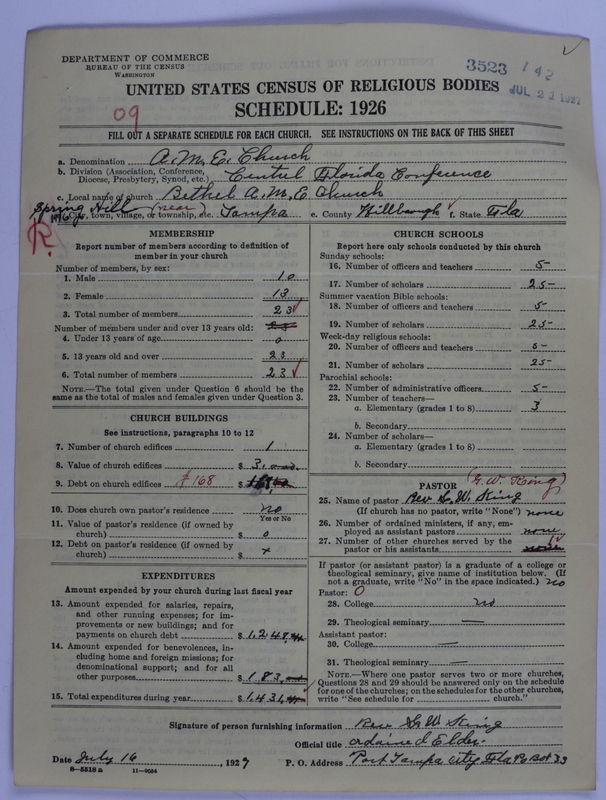 DEPARTMENT OF COMMERCE
BUREAU OF THE CENSUS
WASHINGTON
3523 142
JUL 21 1927
UNITED STATES CENSUS OF RELIGIOUS BODIES
SCHEDULE: 1926
09
FILL OUT A SEPARATE SCHEDULE FOR EACH CHURCH. SEE INSTRUCTIONS ON THE BACK OF THIS SHEET
a. Denomination A. M. E. Church
b. Division (Association, Conference, Diocese, Presbytery, Synod, etc.) Central Florida Conference
c. Local name of church Bethel A. M. E Church
Spring Hill
d. City, town, village, or township, etc. near Tampa e. County Hillbough f. State Fla
R.
MEMBERSHIP
Report number of members according to definition of member in your church
Number of members, by sex:
1. Male 10
2. Female 13
3. Total number of members 23
Number of members under and over 13 years old: 23
4. Under 13 years of age 0
5. 13 years old and over 23
6. Total number of members 23
NOTE.—The total given under Question 6 should be the same as the total of males and females given under Question 3.
CHURCH BUILDINGS
See instructions, paragraphs 10 to 12
7. Number of church edifices 1
8. Value of church edifices $
9. Debt on church edifices $168 $
10. Does church own pastor's residence no
Yes or No
11. Value of pastor's residence (if owned by church) $ 0
12. Debt on pastor's residence (if owned by church) $ x
EXPENDITURES
Amount expended by your church during last fiscal year
13. Amount expended for salaries, repairs, and other running expenses; for improvements or new buildings; and for payments on church debt $ 1,248
14. Amount expended for benevolences, including home and foreign missions; for denominational support; and for all other purposes $ 183
15. Total expenditures during year $ 1,431
CHURCH SCHOOLS
Report here only schools conducted by this church
Sunday schools:
16. Number of officers and teachers 5
17. Number of scholars 25
Summer vacation Bible schools:
18. Number of officers and teachers 5
19. Number of scholars 25
Week-day religious schools:
20. Number of officers and teachers 5
21. Number of scholars 25
Parochial schools:
22. Number of administrative officers 5
23. Number of teachers—
a. Elementary (grades 1 to 8) 3
b. Secondary
24. Number of scholars—
a. Elementary (grades 1 to 8)
b. Secondary
PASTOR (G. W. King)
25. Name of pastor Rev G. W. King
(If church has no pastor, write "None") none
26. Number of ordained ministers, if any, employed as assistant pastors none
27. Number of other churches served by the pastor or his assistants none
If pastor (or assistant pastor) is a graduate of a college or theological seminary, give name of institution below. (If not a graduate, write "No" in the space indicated.) no
Pastor: 0
28. College no
29. Theological seminary —
Assistant pastor:
30. College —
31. Theological seminary —
NOTE.—Where one pastor serves two or more churches, Questions 28 and 29 should be answered only on the schedule for one of the churches; on the schedules for the other churches, write "See schedule for church."
Signature of person furnishing information Rev G W King
Official title ordained Elder
Date July 16, 1927 P. O. Address Port Tampa City Fla PO Box 33
8—5518 a 11—9034